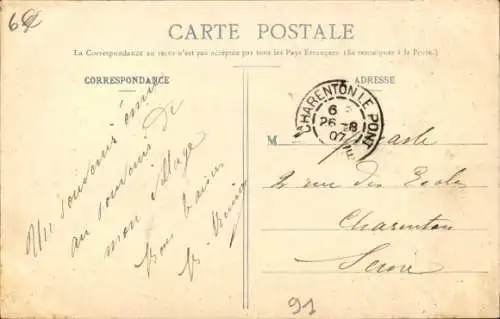 6
CARTE POSTALE
La Correspondance au recto n'est pas acceptée par tous les Pays Étrangers. (Se renseigner à la Poste.)
CORRESPONDANCE
ADRESSE
CHARENTON LE PONT
6
26-8
07
M
2 rue des Ecoles
Charenton
Seine
Un souvenir ému
au souvenir de
mon village
Bons baisers
91